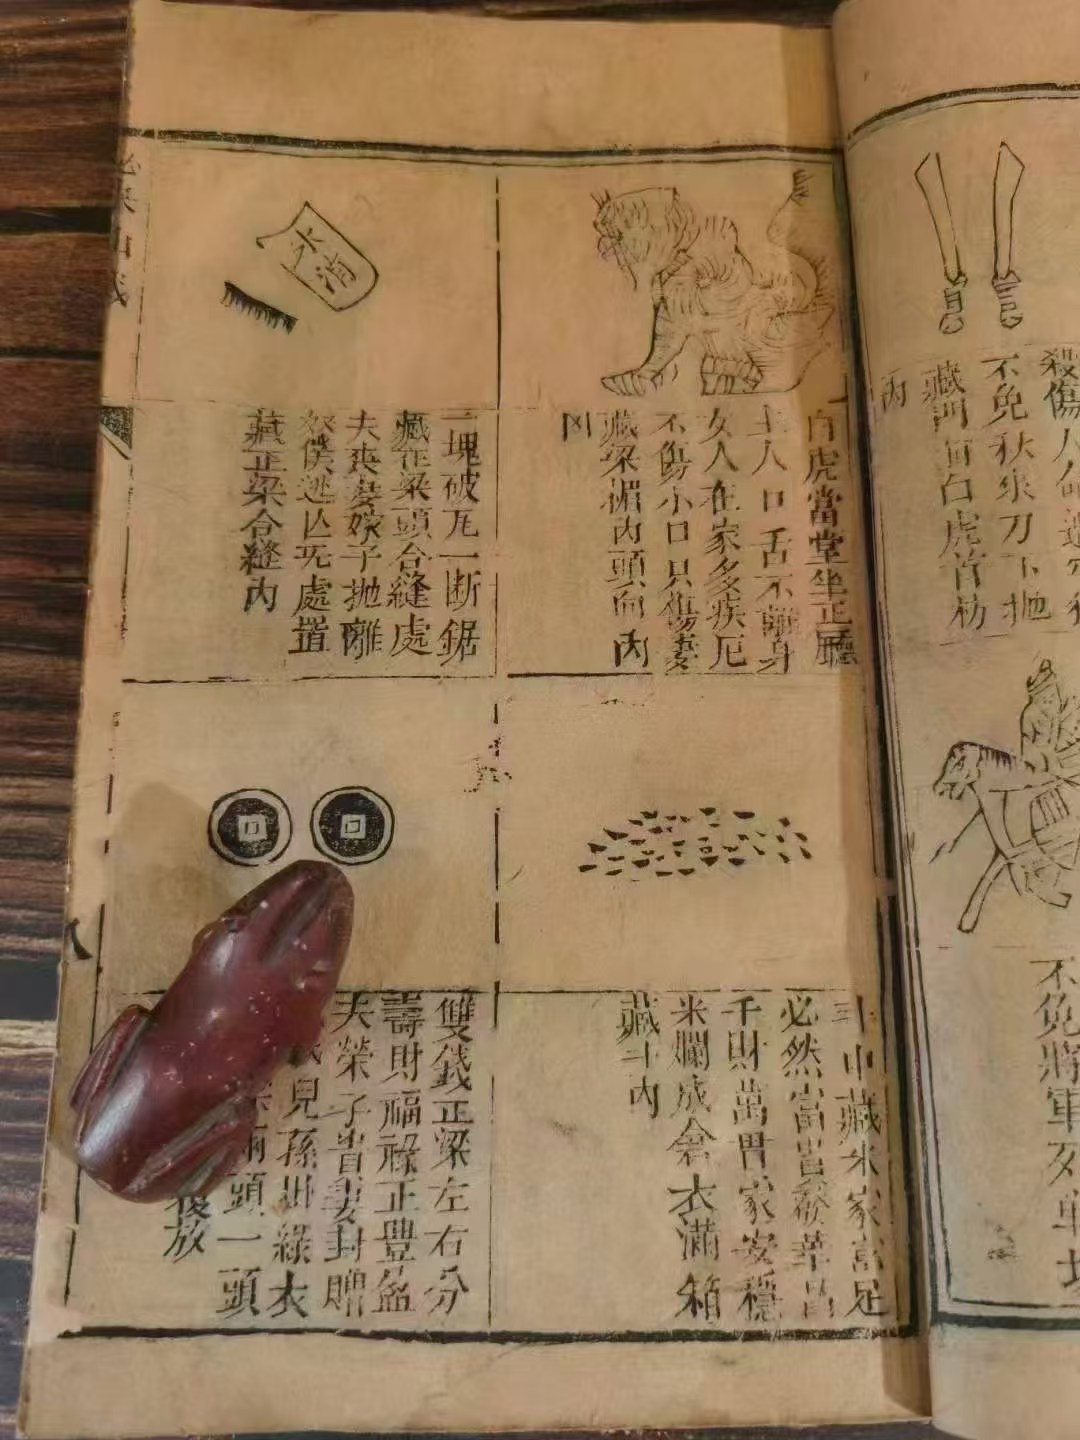 殺傷人命
不免秋來刀下拋
藏門前白虎首枋
內
不免將軍死戰場
白虎當堂坐正廳
主人口舌不離身
女人在家多疾厄
不傷小口只傷妻
藏梁楣內頭向內
凶
氷消
一塊破瓦一断鋸
藏在梁頭合縫處
夫喪妻嫁子拋離
奴僕逃亾旡處置
藏正梁合縫內
斗中藏米家富足
必然富貴發華昌
千財萬貫家安穩
米爛成倉衣滿箱
藏斗內
雙錢正梁左右分
壽財福祿正豐盈
夫榮子貴妻封贈
兒孫掛綠衣
兩頭一頭
放
八